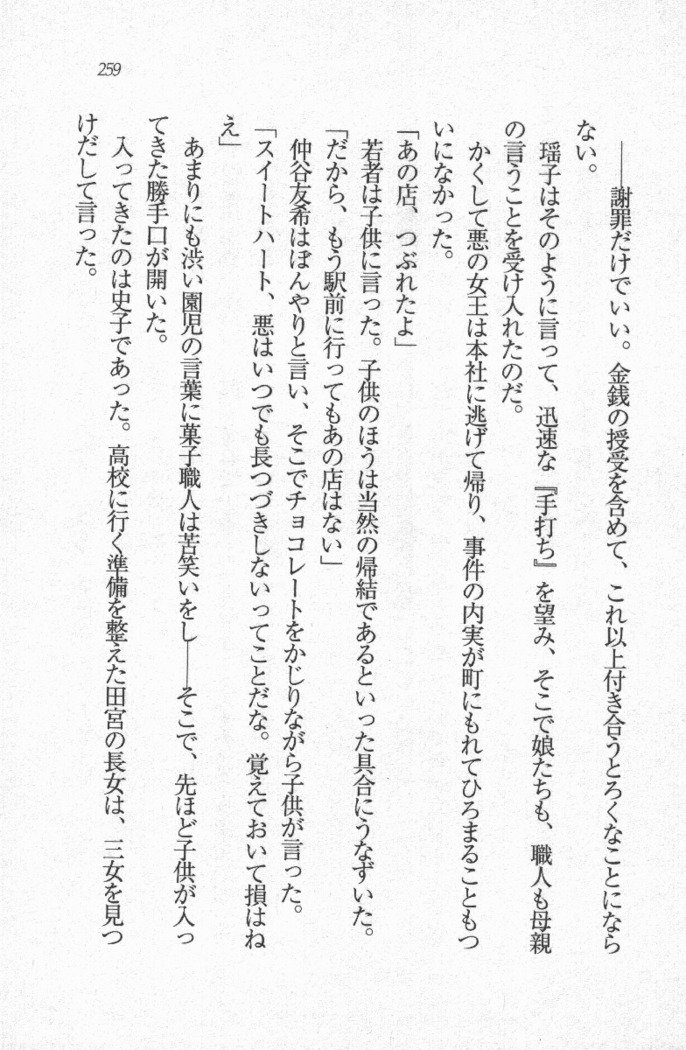 259
――謝罪だけでいい。金銭の授受を含めて、これ以上付き合うとろくなことになら
ない。
瑶子はそのように言って、迅速な『手打ち』を望み、そこで娘たちも、職人も母親
の言うことを受け入れたのだ。
かくして悪の女王は本社に逃げて帰り、事件の内実が町にもれてひろまることもつ
いになかった。
「あの店、つぶれたよ」
若者は子供に言った。子供のほうは当然の帰結であるといった具合にうなずいた。
「だから、もう駅前に行ってもあの店はない」
仲谷友希はぼんやりと言い、そこでチョコレートをかじりながら子供が言った。
「スイートハート、悪はいつでも長つづきしないってことだな。覚えておいて損はね
え」
あまりにも渋い園児の言葉に菓子職人は苦笑いをし――そこで、先ほど子供が入っ
てきた勝手口が開いた。
入ってきたのは史子であった。高校に行く準備を整えた田宮の長女は、三女を見つ
けだして言った。